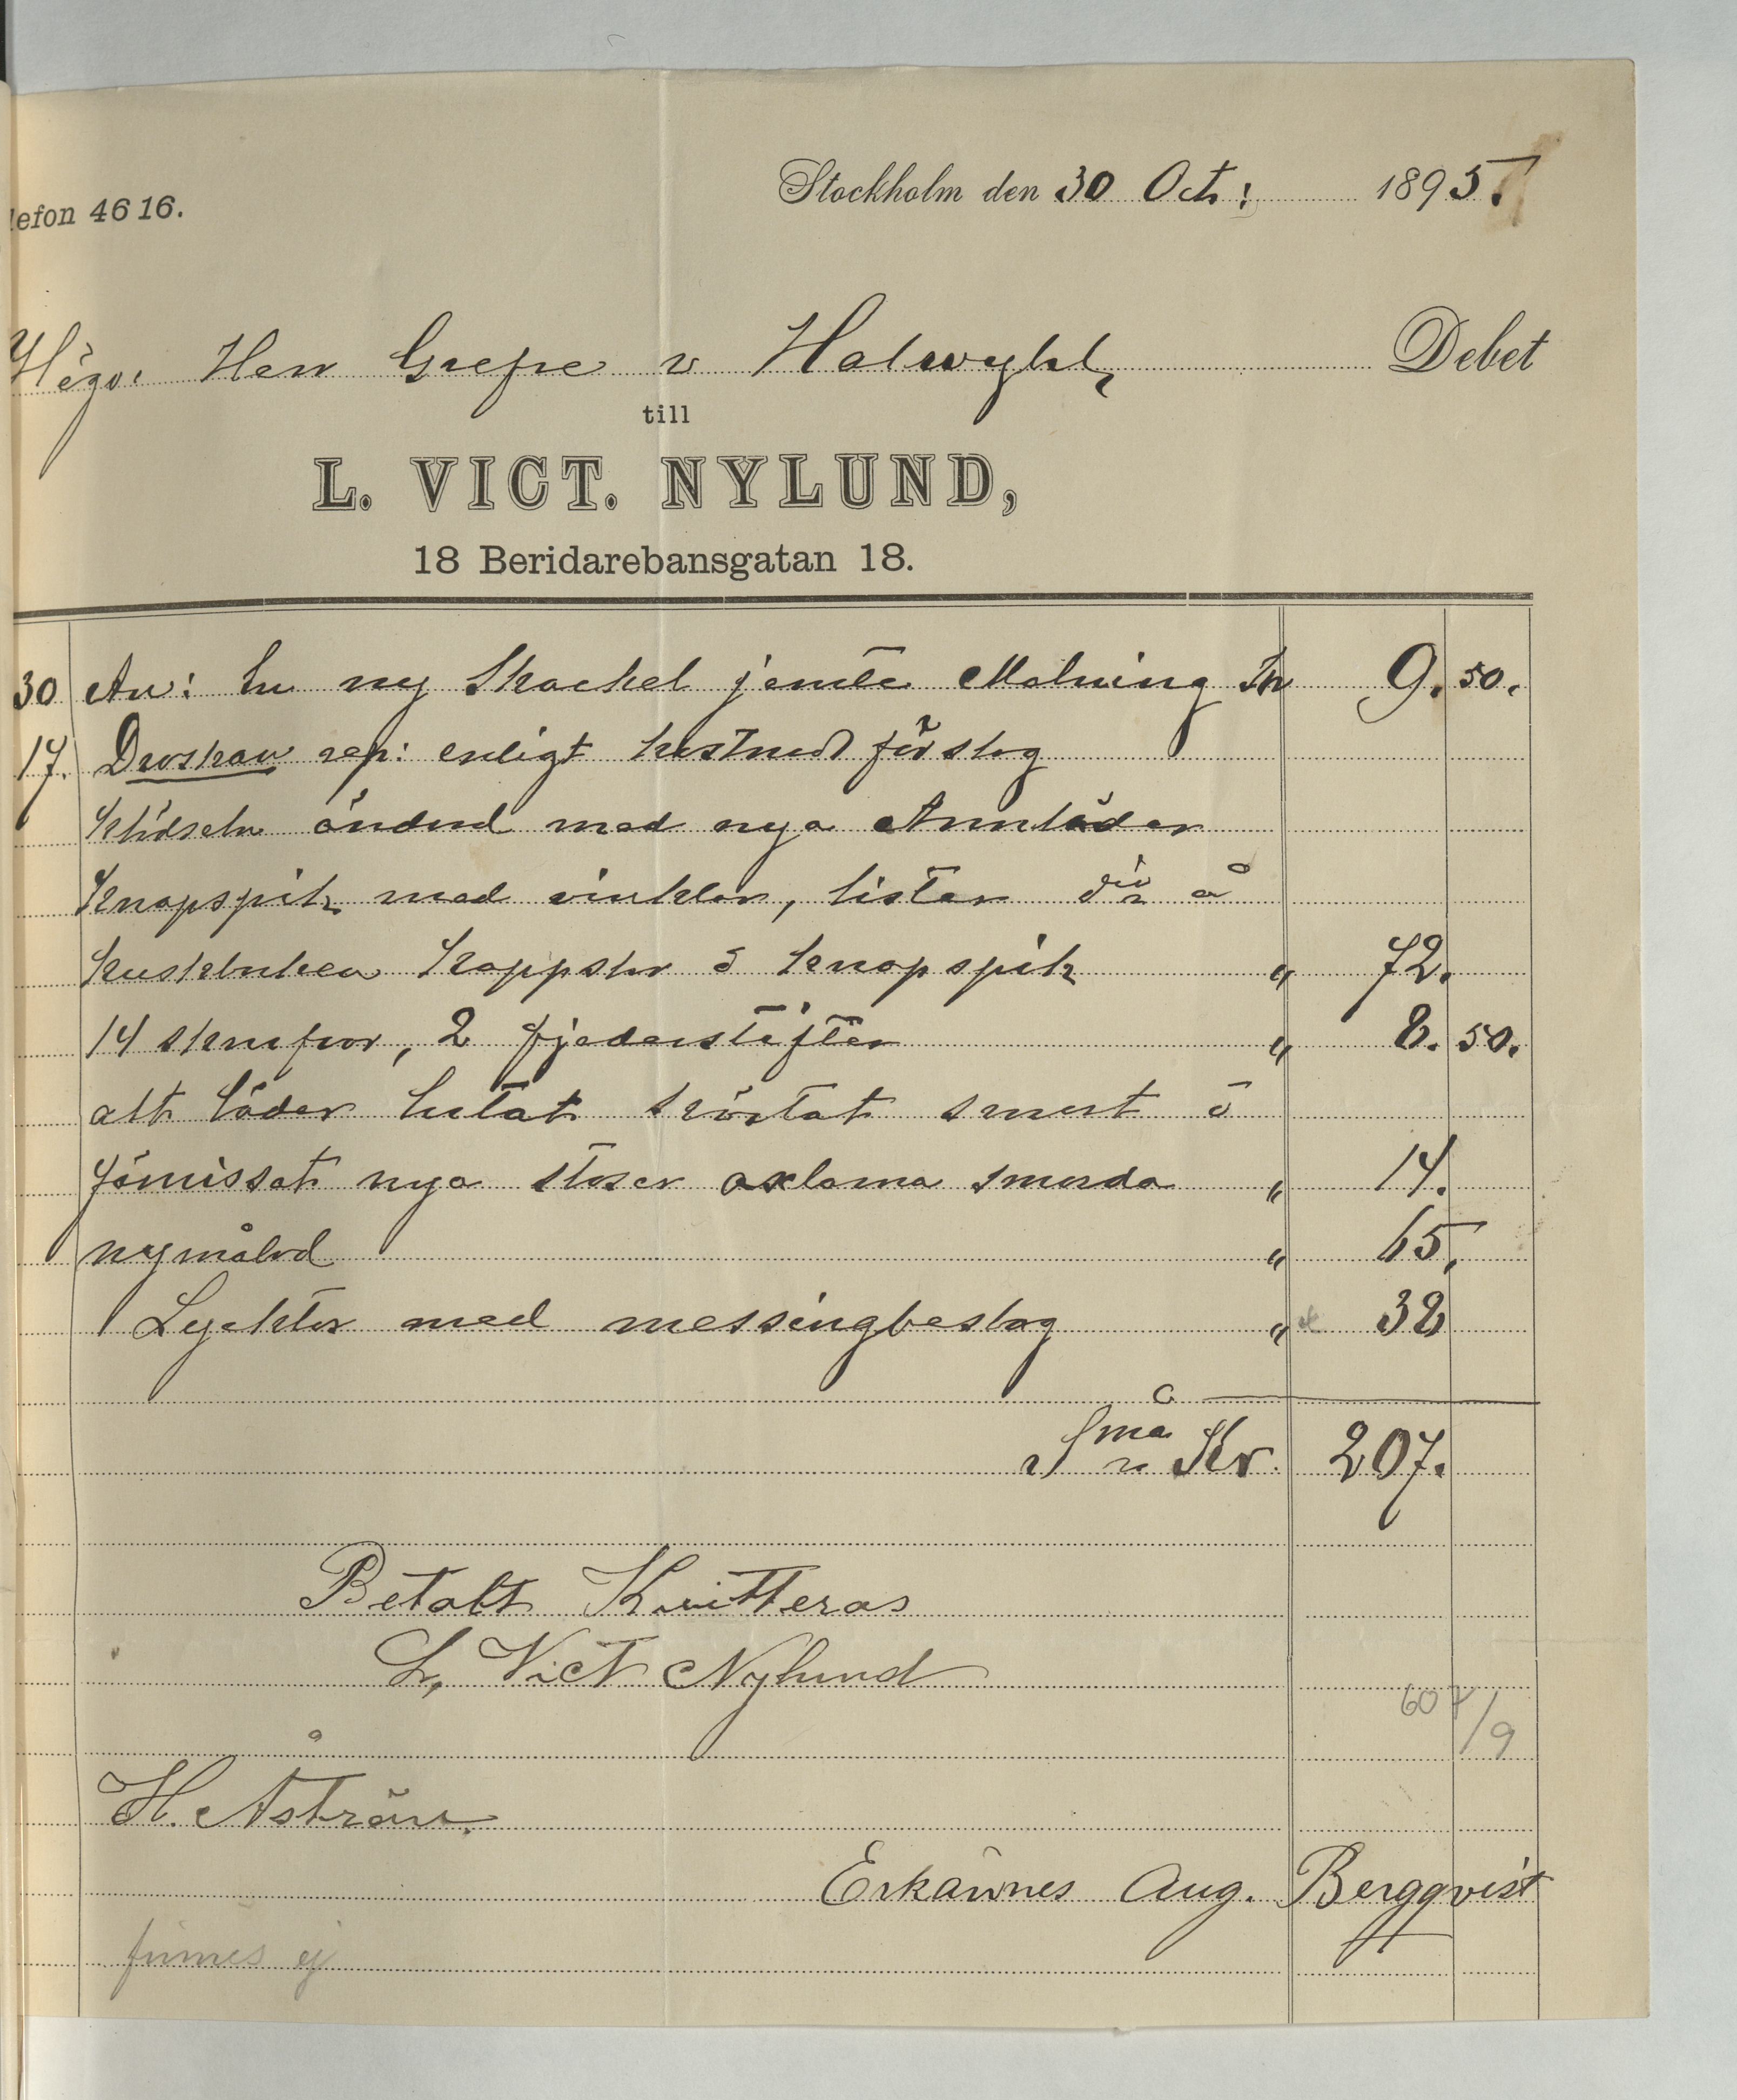 lefon 4616.
Stockholm den 30 Oct: 1895.
Högv. Herr Grefve v Halwyhl, Debet
till
L. VICT. NYLUND,
18 Beridarebansgatan 18.
30 An: En ny Skackel jemte Målning Kr 9. 50.
17. Droskan rep: enligt kostnadsförslag
Klädseln ändrad med nya Armläder
Knapspik med vinklar, lister dio å
kuskbocken kappslar o knapspik " 72.
14 skrufvor, 2 fjederstifter " 8. 50.
alt läder lutat svärtat smort o
förnissat nya stoser axlarna smorda " 14.
nymålad " 65.
1 Lycktor med messingbeslag " 38
Sma Kr 207.
Betalt Kvitteras
L, Vict Nylund
607/9
H. Åström.
Erkännes Aug. Bergqvist
finnes ej